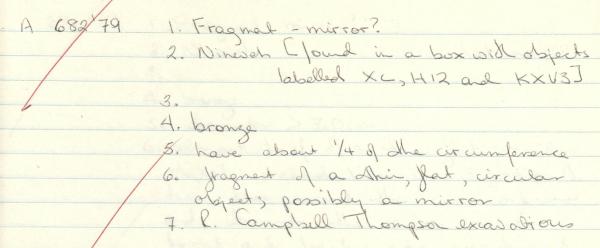 A 682'79 1. Fragmet - mirror?
2. Nineveh [found in a box with objects
labelled XL, H12 and KXV3]
3.
4. bronze
5. have about 1/4 of the circumference
6. fragment of a thin, flat, circular
object, possibly a mirror
7. R. Campbell Thompson excavations